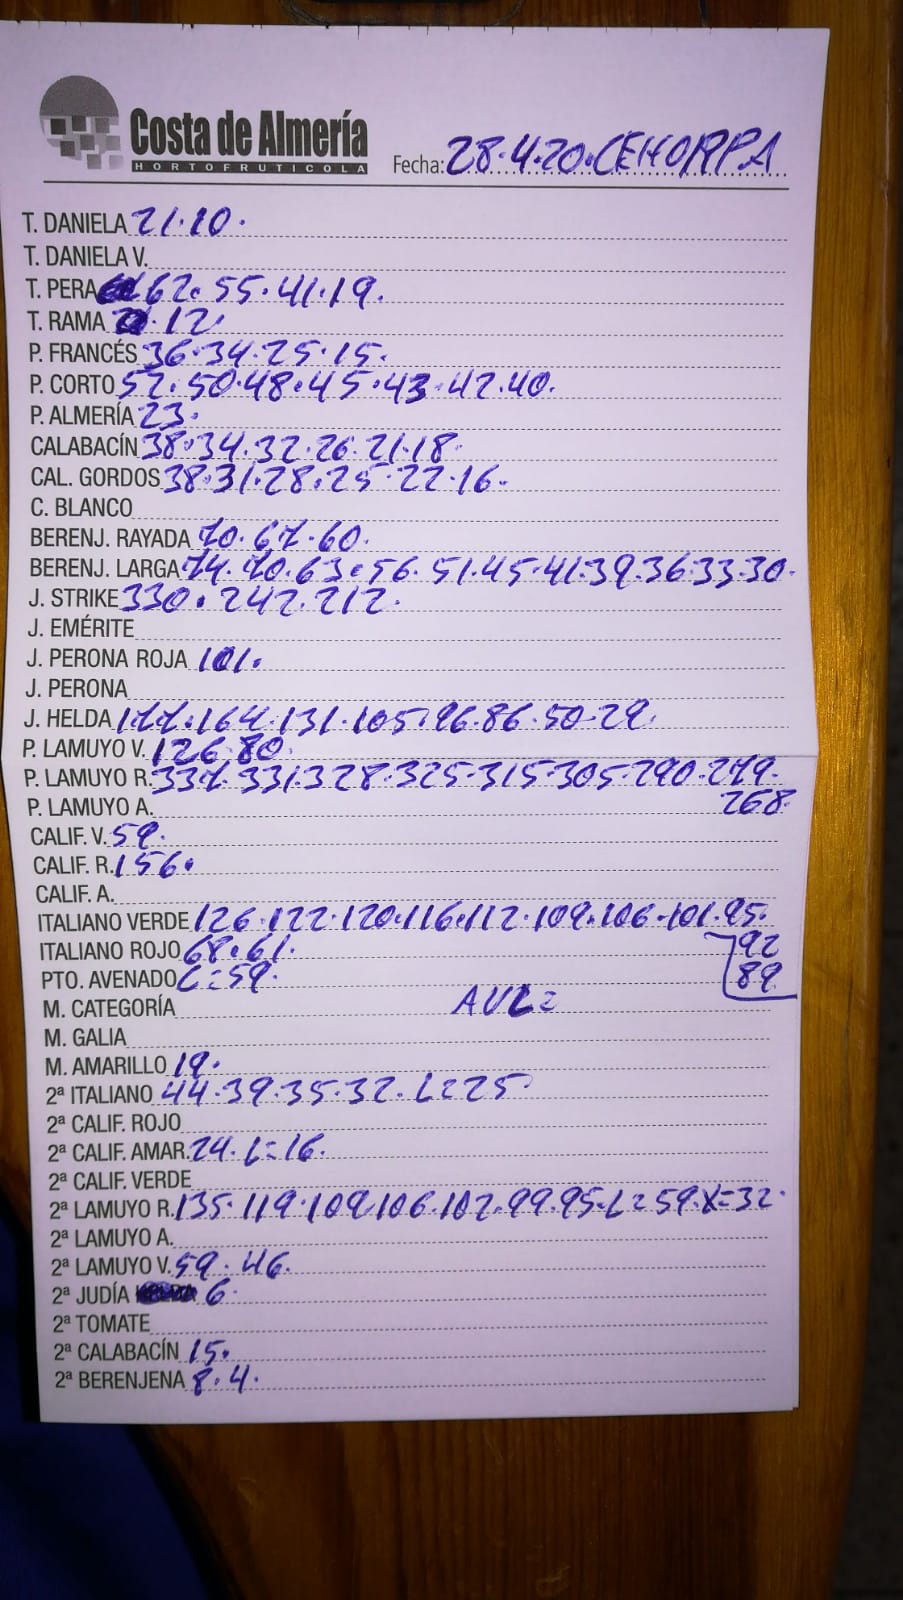 Costa de Almería
HORTOFRUTICOLA
Fecha: 28.4.20. CEHORPA
T. DANIELA 21.10.
T. DANIELA V.
T. PERA 62.55.41.19.
T. RAMA 12.
P. FRANCÉS 36.34.25.15.
P. CORTO 52.50.48.45.43.42.40.
P. ALMERÍA 23.
CALABACÍN 38.34.32.26.21.18.
CAL. GORDOS 38.31.28.25.22.16.
C. BLANCO
BERENJ. RAYADA 70.67.60.
BERENJ. LARGA 74.70.63.56.51.45.41.39.36.33.30.
J. STRIKE 330.242.212.
J. EMÉRITE
J. PERONA ROJA 101.
J. PERONA
J. HELDA 177.164.131.105.96.86.50.29.
P. LAMUYO V. 126.80.
P. LAMUYO R. 337.331.328.325.315.305.290.279.
P. LAMUYO A. 268.
CALIF. V. 59.
CALIF. R. 156.
CALIF. A.
ITALIANO VERDE 126.122.120.116.112.109.106.101.95.
ITALIANO ROJO 68.61. 92
PTO. AVENADO L=59. 89
M. CATEGORÍA AVL=
M. GALIA
M. AMARILLO 19.
2ª ITALIANO 44.39.35.32.L=25
2ª CALIF. ROJO
2ª CALIF. AMAR. 24.L=16.
2ª CALIF. VERDE
2ª LAMUYO R. 135.119.109.106.102.99.95.L=59.X=32.
2ª LAMUYO A.
2ª LAMUYO V. 59.46.
2ª JUDÍA 6.
2ª TOMATE
2ª CALABACÍN 15.
2ª BERENJENA 8.4.